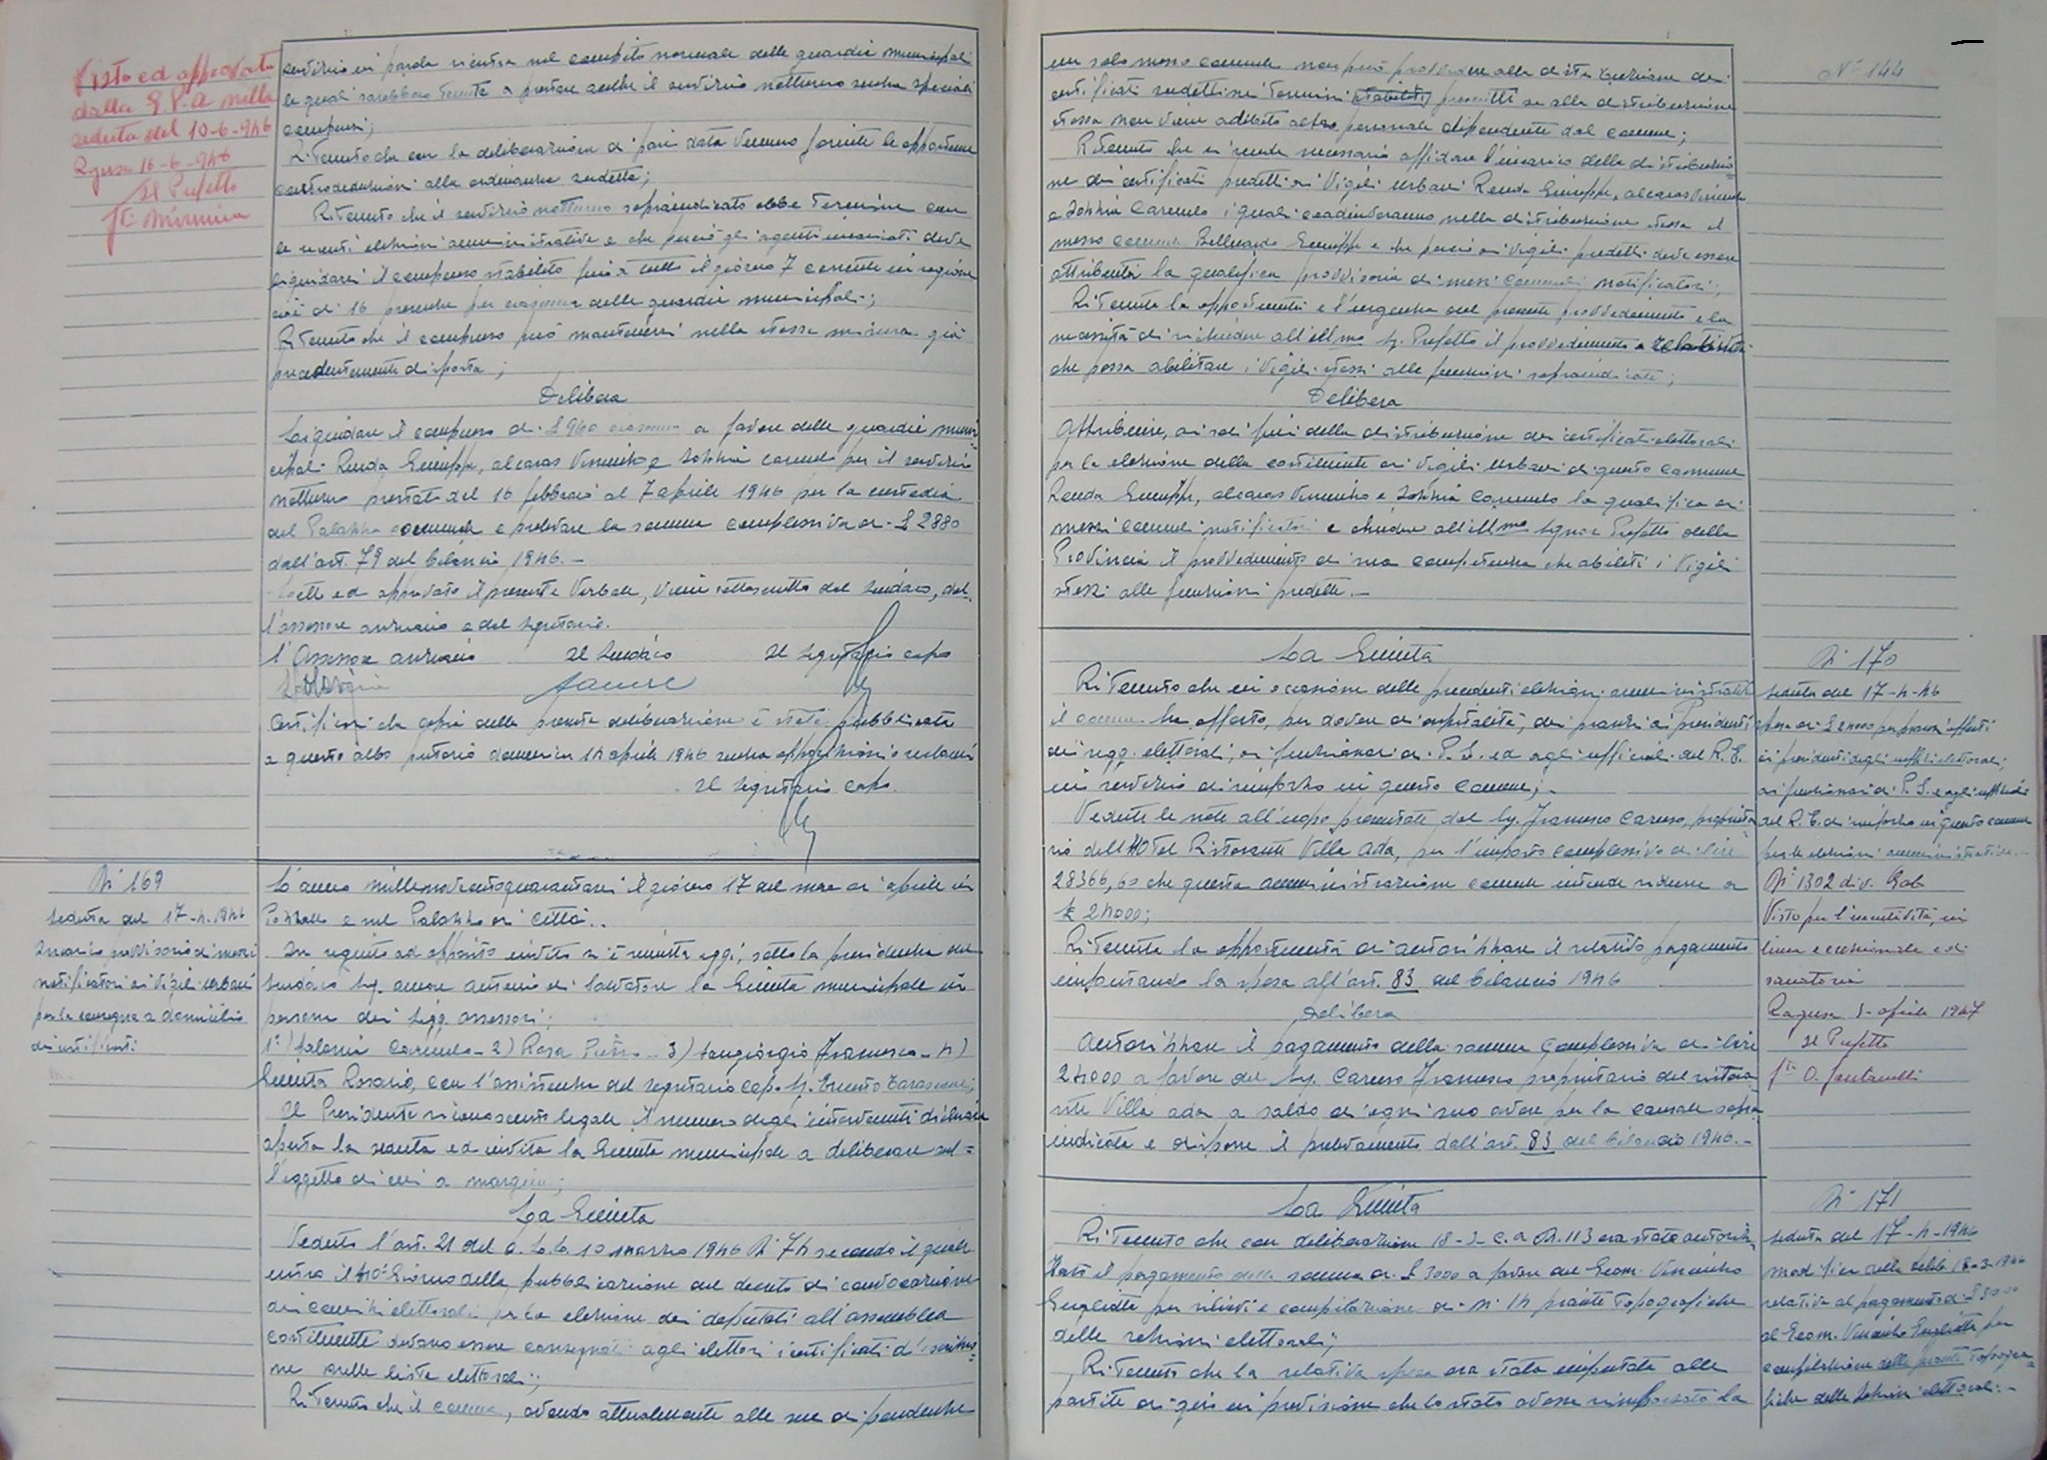 Visto ed approvato
dalla G.P.A nella
seduta del 10-6-946
Ragusa 16-6-946
Il Prefetto
servizio in parola rientra nel compito normale delle guardie municipali
le quali sarebbero tenute a prestare anche il servizio notturno senza speciali
compensi;
Ritenuto che con la deliberazione di pari data vennero fornite le opportune
controdeduzioni alla ordinanza suddetta;
Ritenuto che il servizio notturno sopraindicato ebbe termine con
le recenti elezioni amministrative e che perciò gli agenti incaricati deve
liquidarsi il compenso stabilito fino a tutto il giorno 7 corrente in ragione
cioè di 16 presenze per ciascuna delle guardie municipali;
Ritenuto che il compenso può mantenersi nella stessa misura già
precedentemente disposta;
Delibera
Liquidare il compenso di £ 960 ciascuno a favore delle guardie muni
cipali Renda Giuseppe, Alcaras Vincenzo e Zocchia Carmelo per il servizio
notturno prestato dal 16 febbraio al 7 aprile 1946 per la custodia
del Palazzo comunale e prelevare la somma complessiva di £ 2880
dall'art. 79 del bilancio 1946.-
Letto ed approvato il presente verbale, viene sottoscritto dal Sindaco, dal
l'assessore anziano e dal segretario.
L'Assessore anziano Il Sindaco Il Segretario capo
Certificasi che copia della presente deliberazione è stata pubblicata
a questo albo pretorio domenica 14 aprile 1946 senza opposizioni o reclami
Il Segretario capo.
N° 169
Seduta del 17-4-1946
Incarico provvisorio di messi
notificatori ai Vigili urbani
per la consegna a domicilio
dei certificati
L'anno millenovecentoquarantasei il giorno 17 del mese di aprile in
Pozzallo e nel Palazzo di Città.
In seguito ad apposito invito si è riunita oggi, sotto la presidenza del
Sindaco Sig. Amore Antonio di Salvatore la Giunta municipale in
persona dei Sigg. assessori:
1°) Carmelo - 2) Rosa Pietro - 3) Sangiorgio Francesco - 4)
Giunta Rosario, con l'assistenza del segretario capo Sig. Ernesto Tarascone;
Il Presidente riconosciuto legale il numero degli intervenuti dichiara
aperta la seduta ed invita la Giunta municipale a deliberare sul=
l'oggetto di cui a margine;
La Giunta
Veduto l'art. 21 del D.L.L. 10 marzo 1946 N° 74 secondo il quale
entro il 40° giorno della pubblicazione del decreto di convocazione
dei comizi elettorali per la elezione dei deputati all'assemblea
costituente devono essere consegnati agli elettori i certificati d'iscrizio=
ne nelle liste elettorali;
Ritenuto che il comune, avendo attualmente alle sue dipendenze
N° 144
un solo messo comunale non può provvedere alla distribuzione dei
certificati suddetti nei termini (stabiliti) prescritti se alla distribuzione
stessa non viene adibito altro personale dipendente dal comune;
Ritenuto che si rende necessario affidare l'incarico della distribuzio
ne dei certificati predetti ai Vigili urbani Renda Giuseppe, Alcaras Vincenzo
e Zocchia Carmelo i quali coadiuveranno nella distribuzione stessa il
messo comunale Belluardo Giuseppe e che perciò ai vigili predetti deve essere
attribuita la qualifica provvisoria di messi comunali notificatori;
Ritenuta la opportunità e l'urgenza del presente provvedimento e la
necessità di richiedere all'Ill.mo Sig. Prefetto il provvedimento
che possa abilitare i Vigili stessi alle funzioni sopraindicate;
Delibera
Attribuire, ai soli fini della distribuzione dei certificati elettorali
per la elezione della costituente ai Vigili Urbani di questo Comune
Renda Giuseppe, Alcaras Vincenzo e Zocchia Carmelo la qualifica di
messi comunali notificatori e chiedere all'Ill.mo Signor Prefetto della
Provincia il provvedimento di sua competenza che abiliti i Vigili
stessi alle funzioni predette.-
La Giunta
Ritenuto che in occasione delle precedenti elezioni amministrative
il comune ha offerto, per dovere di ospitalità, dei pranzi ai Presidenti
dei segg. elettorali, ai funzionari di P.S. ed agli ufficiali del R.E.
in servizio di rinforzo in questo comune;-
Vedute le note all'uopo presentate dal Sig. Francesco Caruso, proprieta
rio dell'Hotel Ristorante Villa Ada, per l'importo complessivo di lire
28366,60 che questa amministrazione comunale intende ridurre a
£ 24000;
Ritenuta la opportunità di autorizzare il relativo pagamento
imputando la spesa all'art. 83 del bilancio 1946
Delibera
Autorizzare il pagamento della somma complessiva di lire
24000 a favore del Sig. Caruso Francesco proprietario del ristora
nte Villa Ada a saldo di ogni suo avere per la causale sopra
indicata e dispone il prelevamento dall'art. 83 del bilancio 1946.-
N° 170
Seduta del 17-4-46
Spesa di £ 24000 per pranzi offerti
ai presidenti degli uffici elettorali;
ai funzionari di P.S. e agli ufficiali
del R.E. di rinforzo in questo comune
per le elezioni amministrative.-
N° 1302 div. Gab
Visto per l'esecutività, in
linea eccezionale e di
sanatoria
Ragusa 5-aprile 1947
Il Prefetto
La Giunta
Ritenuto che con deliberazione 18-2- c.a N. 113 era stato autoriz
zato il pagamento della somma di £ 3000 a favore del Geom. Vincenzo
Guglietta per rilievi e compilazione di n° 14 piante topografiche
delle sezioni elettorali;
Ritenuto che la relativa spesa era stata imputata alle
partite di giro in previsione che lo stato avesse rimborsato la
N° 171
Seduta del 17-4-1946
modifica della delib. 18-2-1946
relativa al pagamento di £ 3000
al Geom. Vincenzo Guglietta per
compilazione delle piante topogra=
fiche delle sezioni elettorali.-